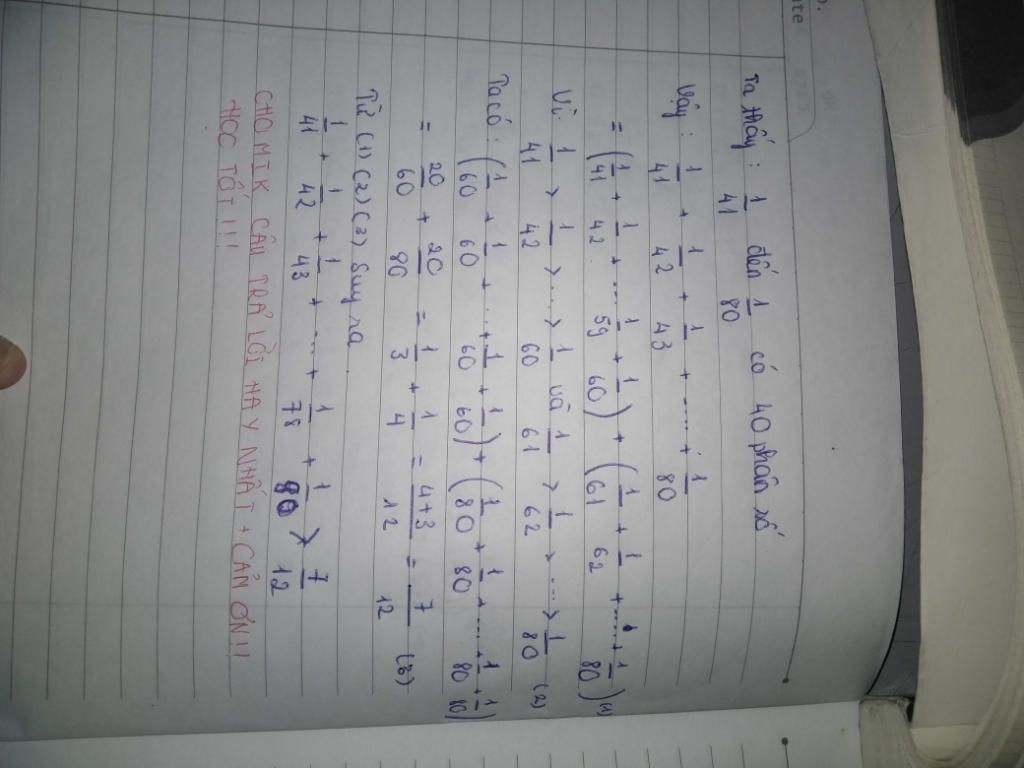 ate
Ta thấy: 1/41 đến 1/80 có 40 phân số
Vậy: 1/41 + 1/42 + 1/43 + ..... + 1/80
= (1/41 + 1/42 + .... 1/59 + 1/60) + (1/61 + 1/62 + .....+ 1/80) (1)
Vì: 1/41 > 1/42 > .... > 1/60 và 1/61 > 1/62 > .... > 1/80 (2)
Ta có: (1/60 + 1/60 + ...+ 1/60 + 1/60) + (1/80 + 1/80 + .....+ 1/80 + 1/80)
= 20/60 + 20/80 = 1/3 + 1/4 = 4+3/12 = 7/12 (3)
Từ (1) (2) (3) Suy ra
1/41 + 1/42 + 1/43 + .... + 1/78 + 1/80 > 7/12
CHO MIK CÂU TRẢ LỜI HAY NHẤT + CẢN ƠN!!
HỌC TỐT!!!